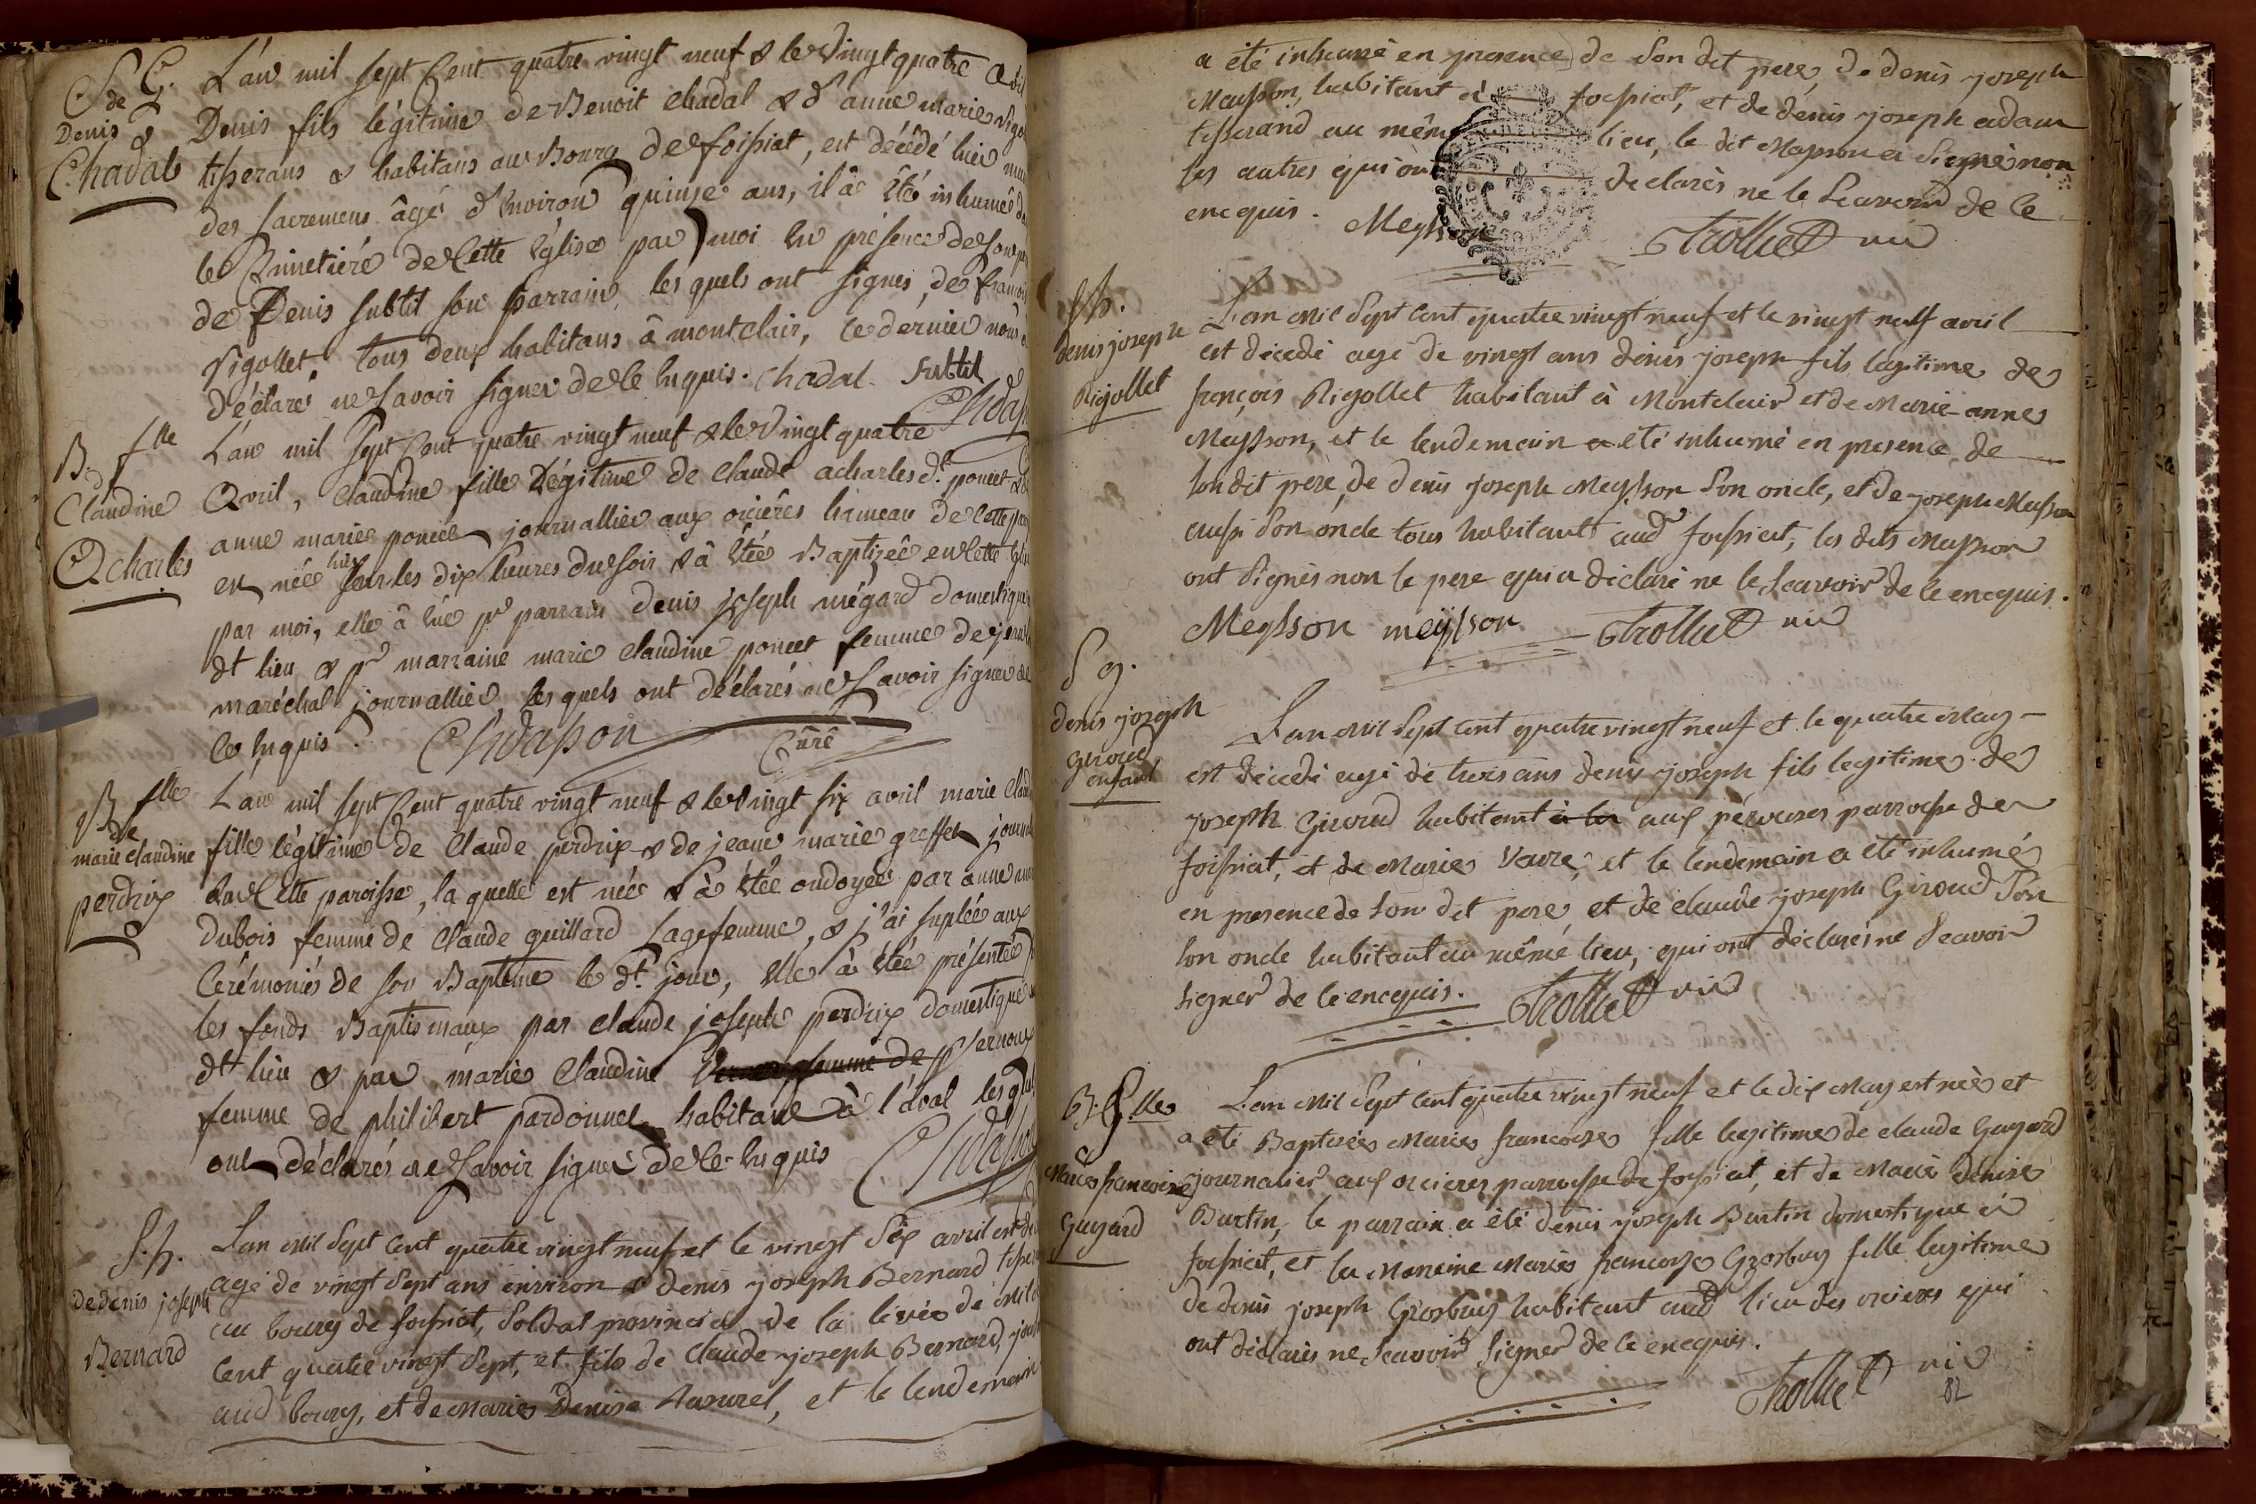 S. G.
de
Denis
Chadal
L'an mil sept Cent quatre vingt neuf & le vingt quatre
Denis fils légitime de Benoit Chadal & d'anne marie
tisserans & habitans au Bourg de foissiat, est décédé hier
des sacremens âgé d'environ quinze ans, il à été inhumé
le Cimetiére de Cette église par moi en présence de son
de Denis subtil son parrain, les quels ont signés, de françois
Vigollet tous deux habitans à montclair, ce dernier
déclaré ne savoir signer de Ce enquis. Chadal. subtil
B. flle
Claudine
Acharles
L'an mil sept Cent quatre vingt neuf & le vingt quatre
Avril, Claudine fille légitime de Claude acharles dt. poncet
anne marie poncet journallier aux oricéres hameau de Cette
est née hier sur les dix heures du soir & à étée Baptizée en Cette
par moi, elle à eue pr parrain denis joseph mégard domestique
dt lieu & pr marraine marie Claudine poncet femme de
maréchal journallier, les quels ont déclarés ne savoir signer de
Ce enquis. Chdasson Curé
B flle
de
marie Claudine
perdrix
L'an mil sept Cent quatre vingt neuf & le vingt six avril marie
fille légitime de Claude perdrix & de jeane marie greffet
de Cette paroisse, la quelle est née & à étée ondoyée par anne
dubois femme de Claude guillard sagefemme, & j'ai suplée aux
Cérémonies de son Baptême le dt. jour, elle à étée présentée
les fonds Baptismaux par Claude joseph perdrix domestique
dt lieu & par marie Claudine femme de Vernoux
femme de philibert pardonnet habitant à l'aval les
ont déclarés ne savoir signer de Ce enquis
S. h.
de denis joseph
Bernard
L'an mil Sept Cent quatre vingt neuf et le vingt Six avril est
agé de vingt Sept ans environ denis joseph Bernard
au bourg de foissiat, Soldat provincial de la levée de mil
Cent quatre vingt Sept, et fils de claude joseph Bernard,
aud bourg, et de marie Denise et le lendemain
a été inhumé en presence de Son dit pere, de denis joseph
Meysson, habitant à foissiat, et de denis joseph adam
tisserand au même lieu, le dit Meysson a signé non
les autres qui ont declarés ne le Scavoir de Ce
enequis. Meysson Trollier vic
S h.
denis joseph
Rigollet
L'an mil Sept Cent quatre vingt neuf et le vingt neuf avril
est décedé agé de vingt ans denis joseph fils legitime de
françois Rigollet habitant à Montclair et de Marie anne
Meysson, et le lendemain a été inhumé en presence de
Son dit pere, de denis joseph Meysson Son oncle, et de joseph Meysson
aussi Son oncle tous habitants aud foissiat, les dits Meysson
ont Signés non le pere qui a declaré ne le Scavoir de Ce enequis.
Meysson meysson Trollier vic
S g.
denis joseph
Giroud
enfant
L'an mil Sept Cent quatre vingt neuf et le quatre may
est décedé agé de trois ans denis joseph fils legitime de
joseph Giroud habitant à la aux parroisse de
foissiat, et de Marie Vavre, et le lendemain a été inhumé
en presence de Son dit pere, et de claude joseph Giroud Son
Son oncle habitant au même lieu, qui ont déclarés ne Scavoir
Signer de Ce enequis. Trollier vic
B. flle
Marie francoise
Guyard
L'an mil Sept Cent quatre vingt neuf et le dix may est née et
a été Baptisée Marie francoise fille legitime de claude Guyard
journalier aux oricieres parroisse de foissiat, et de Marie denise
Burtin, le parrain a été denis joseph Burtin domestique à
foissiat, et la Mareine Marie francoise Grosbuy fille legitime
de denis joseph Grosbuy habitant aud lieu des oricieres qui
ont déclarés ne Scavoir Signer de Ce enequis.
Trollier vic
82